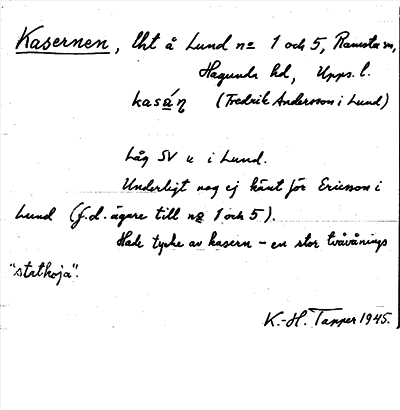 Kasernen, lht å Lund nr 1 och 5, Ramsta sn,
Hagunda hd, Upps. l.
kasá̱ƞ (Fredrik Andersson i Lund)
Låg SV u i Lund.
Underligt nog ej känt för Ericsson i
Lund (f.d. ägare till nr 1 och 5).
Hade tycke av kasern – en stor tvåvånings
"statkoja".
K.-H. Tapper 1945.